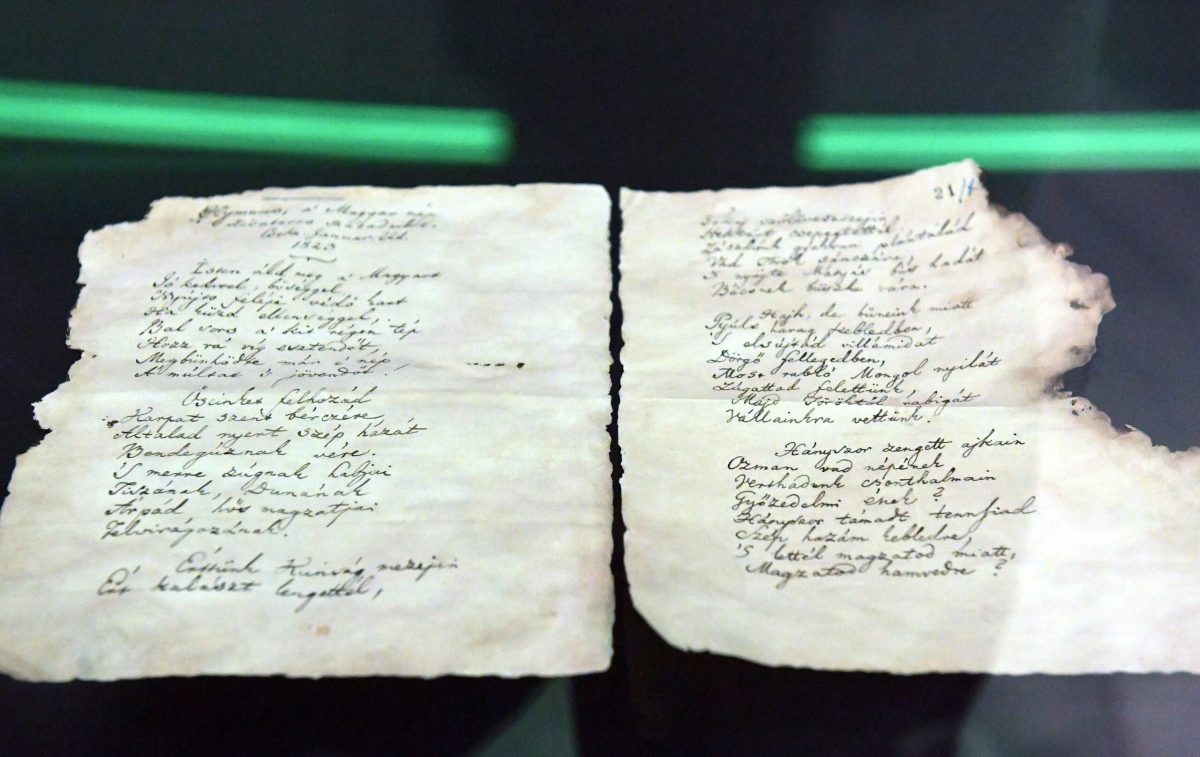 Hymnus, a' Magyar nép
zivataros századaiból.
Cseke Január. 22d.
1823
Isten áldd meg a' Magyart
Jó kedvvel, bőséggel,
Nyujts feléje védő kart
Ha küzd ellenséggel;
Bal sors a' kit régen tép
Hozz rá víg esztendőt,
Megbűnhődte már e' nép
A' múltat 's jövendőt!
Őseinket felhozád
Kárpát szent bérczére,
Általad nyert szép hazát
Bendegúznak vére.
'S merre zúgnak habjai
Tiszának, Dunának
Árpád hős magzatjai
Felvirágozának.
Értünk Kunság mezején
Ért kalászt lengettél,
21/
Tokaj szőlővesszején
Nektárt csepegtettél.
Zászlónk gyakran plántálád
Vad Török sánczaira,
'S nyögte Mátyás bús hadát
Bécsnek büszke vára.
Hajh, de bűneink miatt
Gyúlt harag kebledben,
'S elsújtád villámidat
Dörgő fellegedben,
Most rabló Mongol nyilát
Zúgattad felettünk,
Majd Töröktől rabigát
Vállainkra vettünk.
Hányszor zengett ajkain
Ozman vad népének
Verthadunk csonthalmain
Győzedelmi ének?
Hányszor támadt tennfiad
Szép hazám kebledre,
'S lettél magzatod miatt,
Magzatod hamvedre?